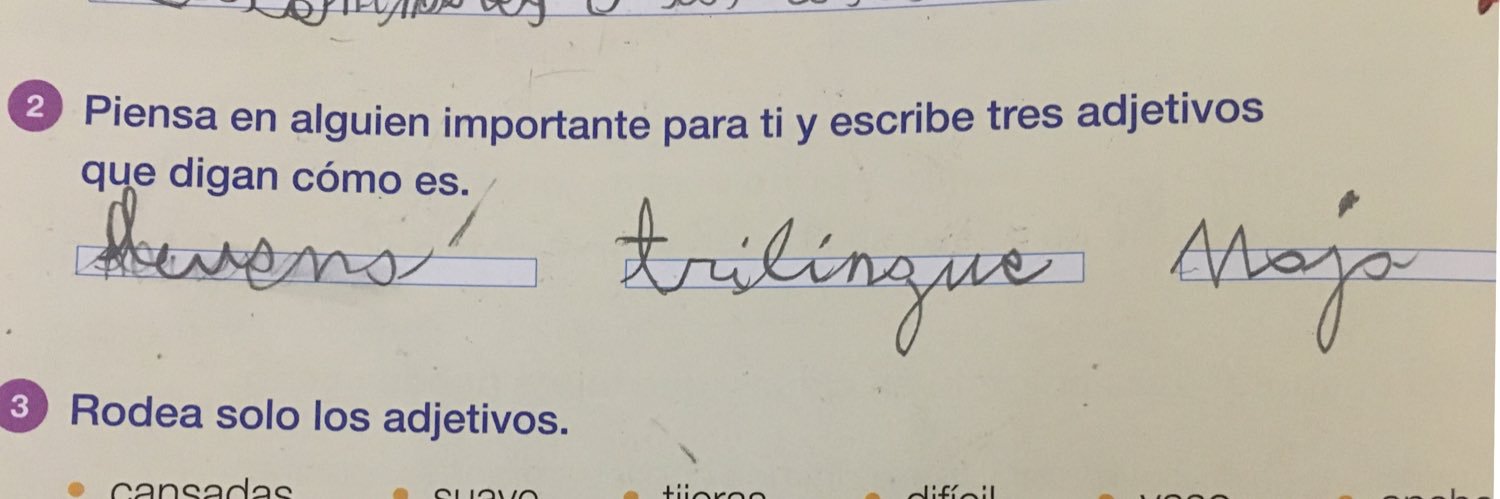 2 Piensa en alguien importante para ti y escribe tres adjetivos
que digan cómo es.
trilingue Maja
3 Rodea solo los adjetivos.
• cansadas • suave • tijeras • difícil